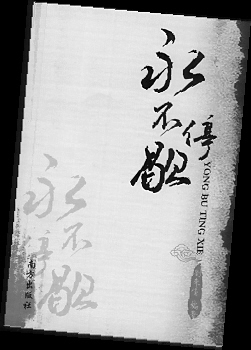 永不停歇
YONG BU TING XIE
永不停歇
南方出版社